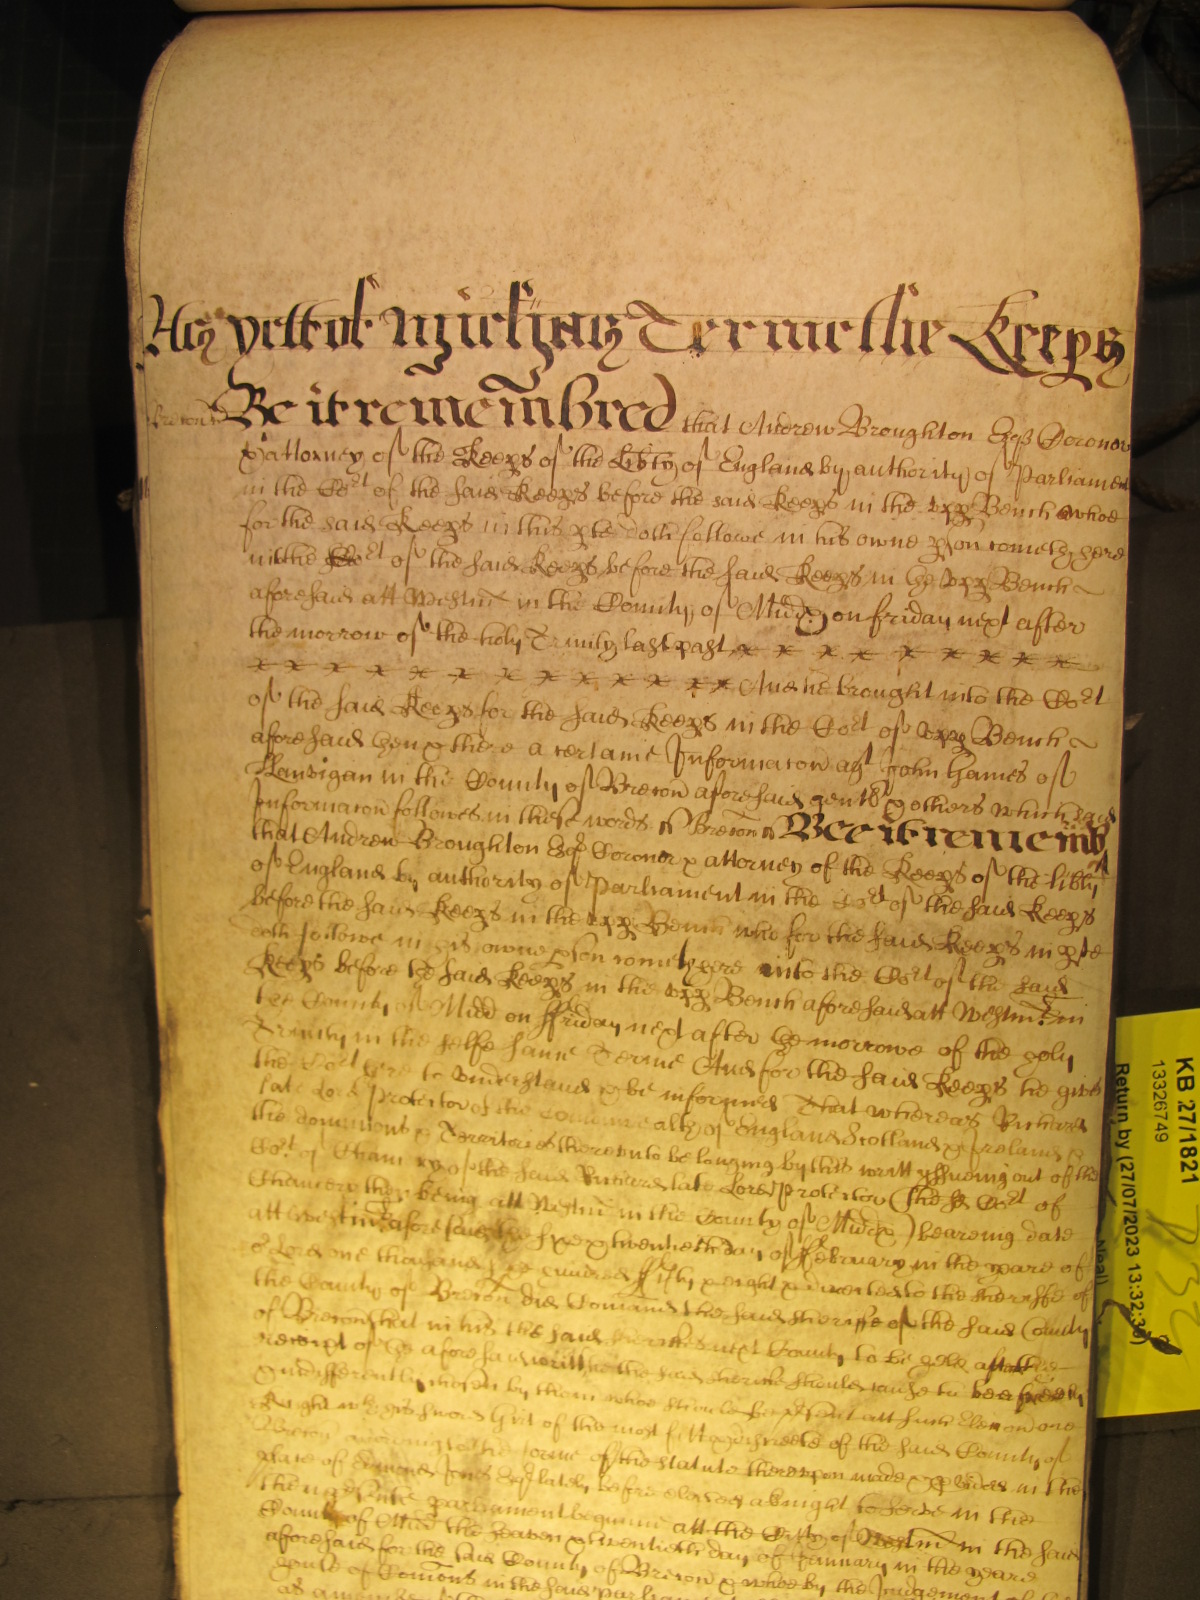 As yett of Michas Terme the Keeps
Brecon Be it remembred that Andrew Broughton Esq Coronor
& attorney of the Keeps of the Libty of England by authority of Parliament
in the Cort of the said Keeps before the said Keeps in the upp Bench whoe
for the said Keeps in this pte doth followe in his owne pson cometh here
in the Cort of the said Keeps before the said Keeps in the upp Bench
aforesaid att Westm in the County of Midd on friday next after
the morrow of the holy Trinity last past
And he brought into the Cort
of the said Keeps for the said Keeps in the Cort of upp Bench
aforesaid then & there a certaine Informacon agt John Games of
in the County of Brecon aforesaid gent & others which said
Informacon followes in these words ss Brecon ss Bee it rememb
that Andrew Broughton Esq Coronor & attorney of the Keeps of the libty
of England by authority of Parliament in the Cort of the said Keeps
before the said Keeps in the upp Bench who for the said Keeps in pte
doth followe in his owne pson cometh here into the Cort of the said
Keeps before the said Keeps in the upp Bench aforesaid att Westm in
the County of Midd on ffriday next after the morrowe of the holy
Trinity in the selfe same Terme And for the said Keeps he gives
the Cort here to understand & be informed That whereas Richard
late Lord Protector of the Comonwealth of England Scotland & Ireland &
the dominions & Territories thereunto belonging by his writt yssueing out of the
Cort of Chancery of the said Richard late Lord Protector (the sd Cort of
Chancery then being att Westm in the County of Midd) bearing date
att Westm aforesaid the six & twentieth day of ffebruary in the yeare of
or Lord one thousand six hundred ffifty & eight & directed to the sheriffe of
the County of Brecon did Comand the said sheriffe of the said County
of Brecon that in his the said sheriffes next County to be held after the
receipt of the aforesaid writt he the said sheriffe should cause to bee freely
& indifferently chosen by them whoe should be psent att such Eleccon one
Knight with his sword girt of the most fitt & discreete of the said County of
Brecon according to the forme of the statute thereupon made & pvided in the
place of Edmond Jones Esq lately before elected a knight to serve in the
the parliament begunne att the Citty of Westm in the said
County of Midd the seaven & twentieth day of January in the yeare
aforesaid for the said County of Brecon & whoe by the Judgement of the
house of Comons in the said parliam
KB 27/1821
13326749
Return by (27/07/2023 13:32:36)